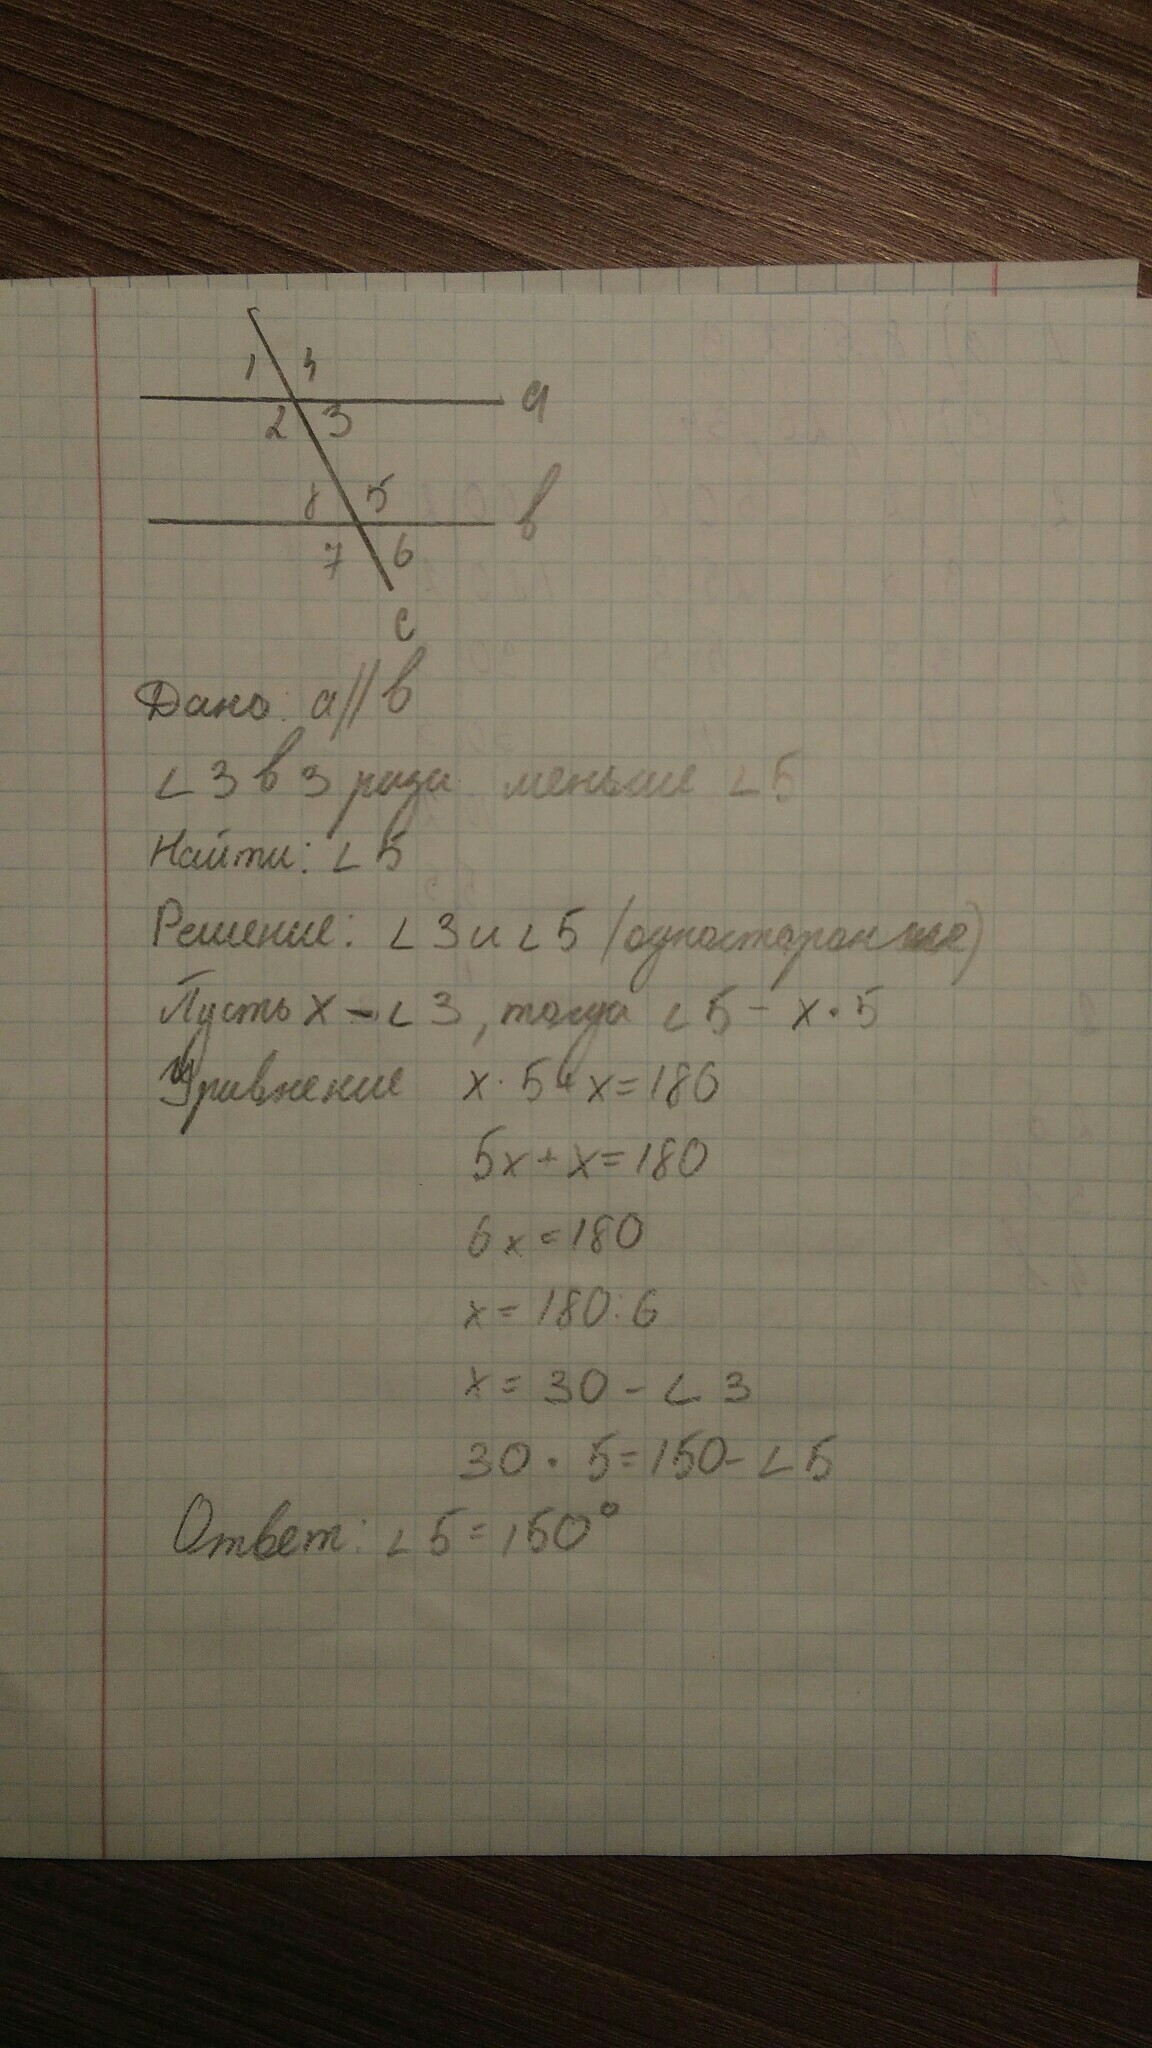 1 4
a
2 3
8 5
в
7 6
с
Дано: а//в
∠3 в 3 раза меньше ∠5
Найти: ∠5
Решение: ∠3 и ∠5 (односторонние)
Пусть х - ∠3, тогда ∠5 - х·5
Уравнение х·5+х=180
5х+х=180
6х=180
х=180:6
х=30-∠3
30·5=150-∠5
Ответ: ∠5=150°